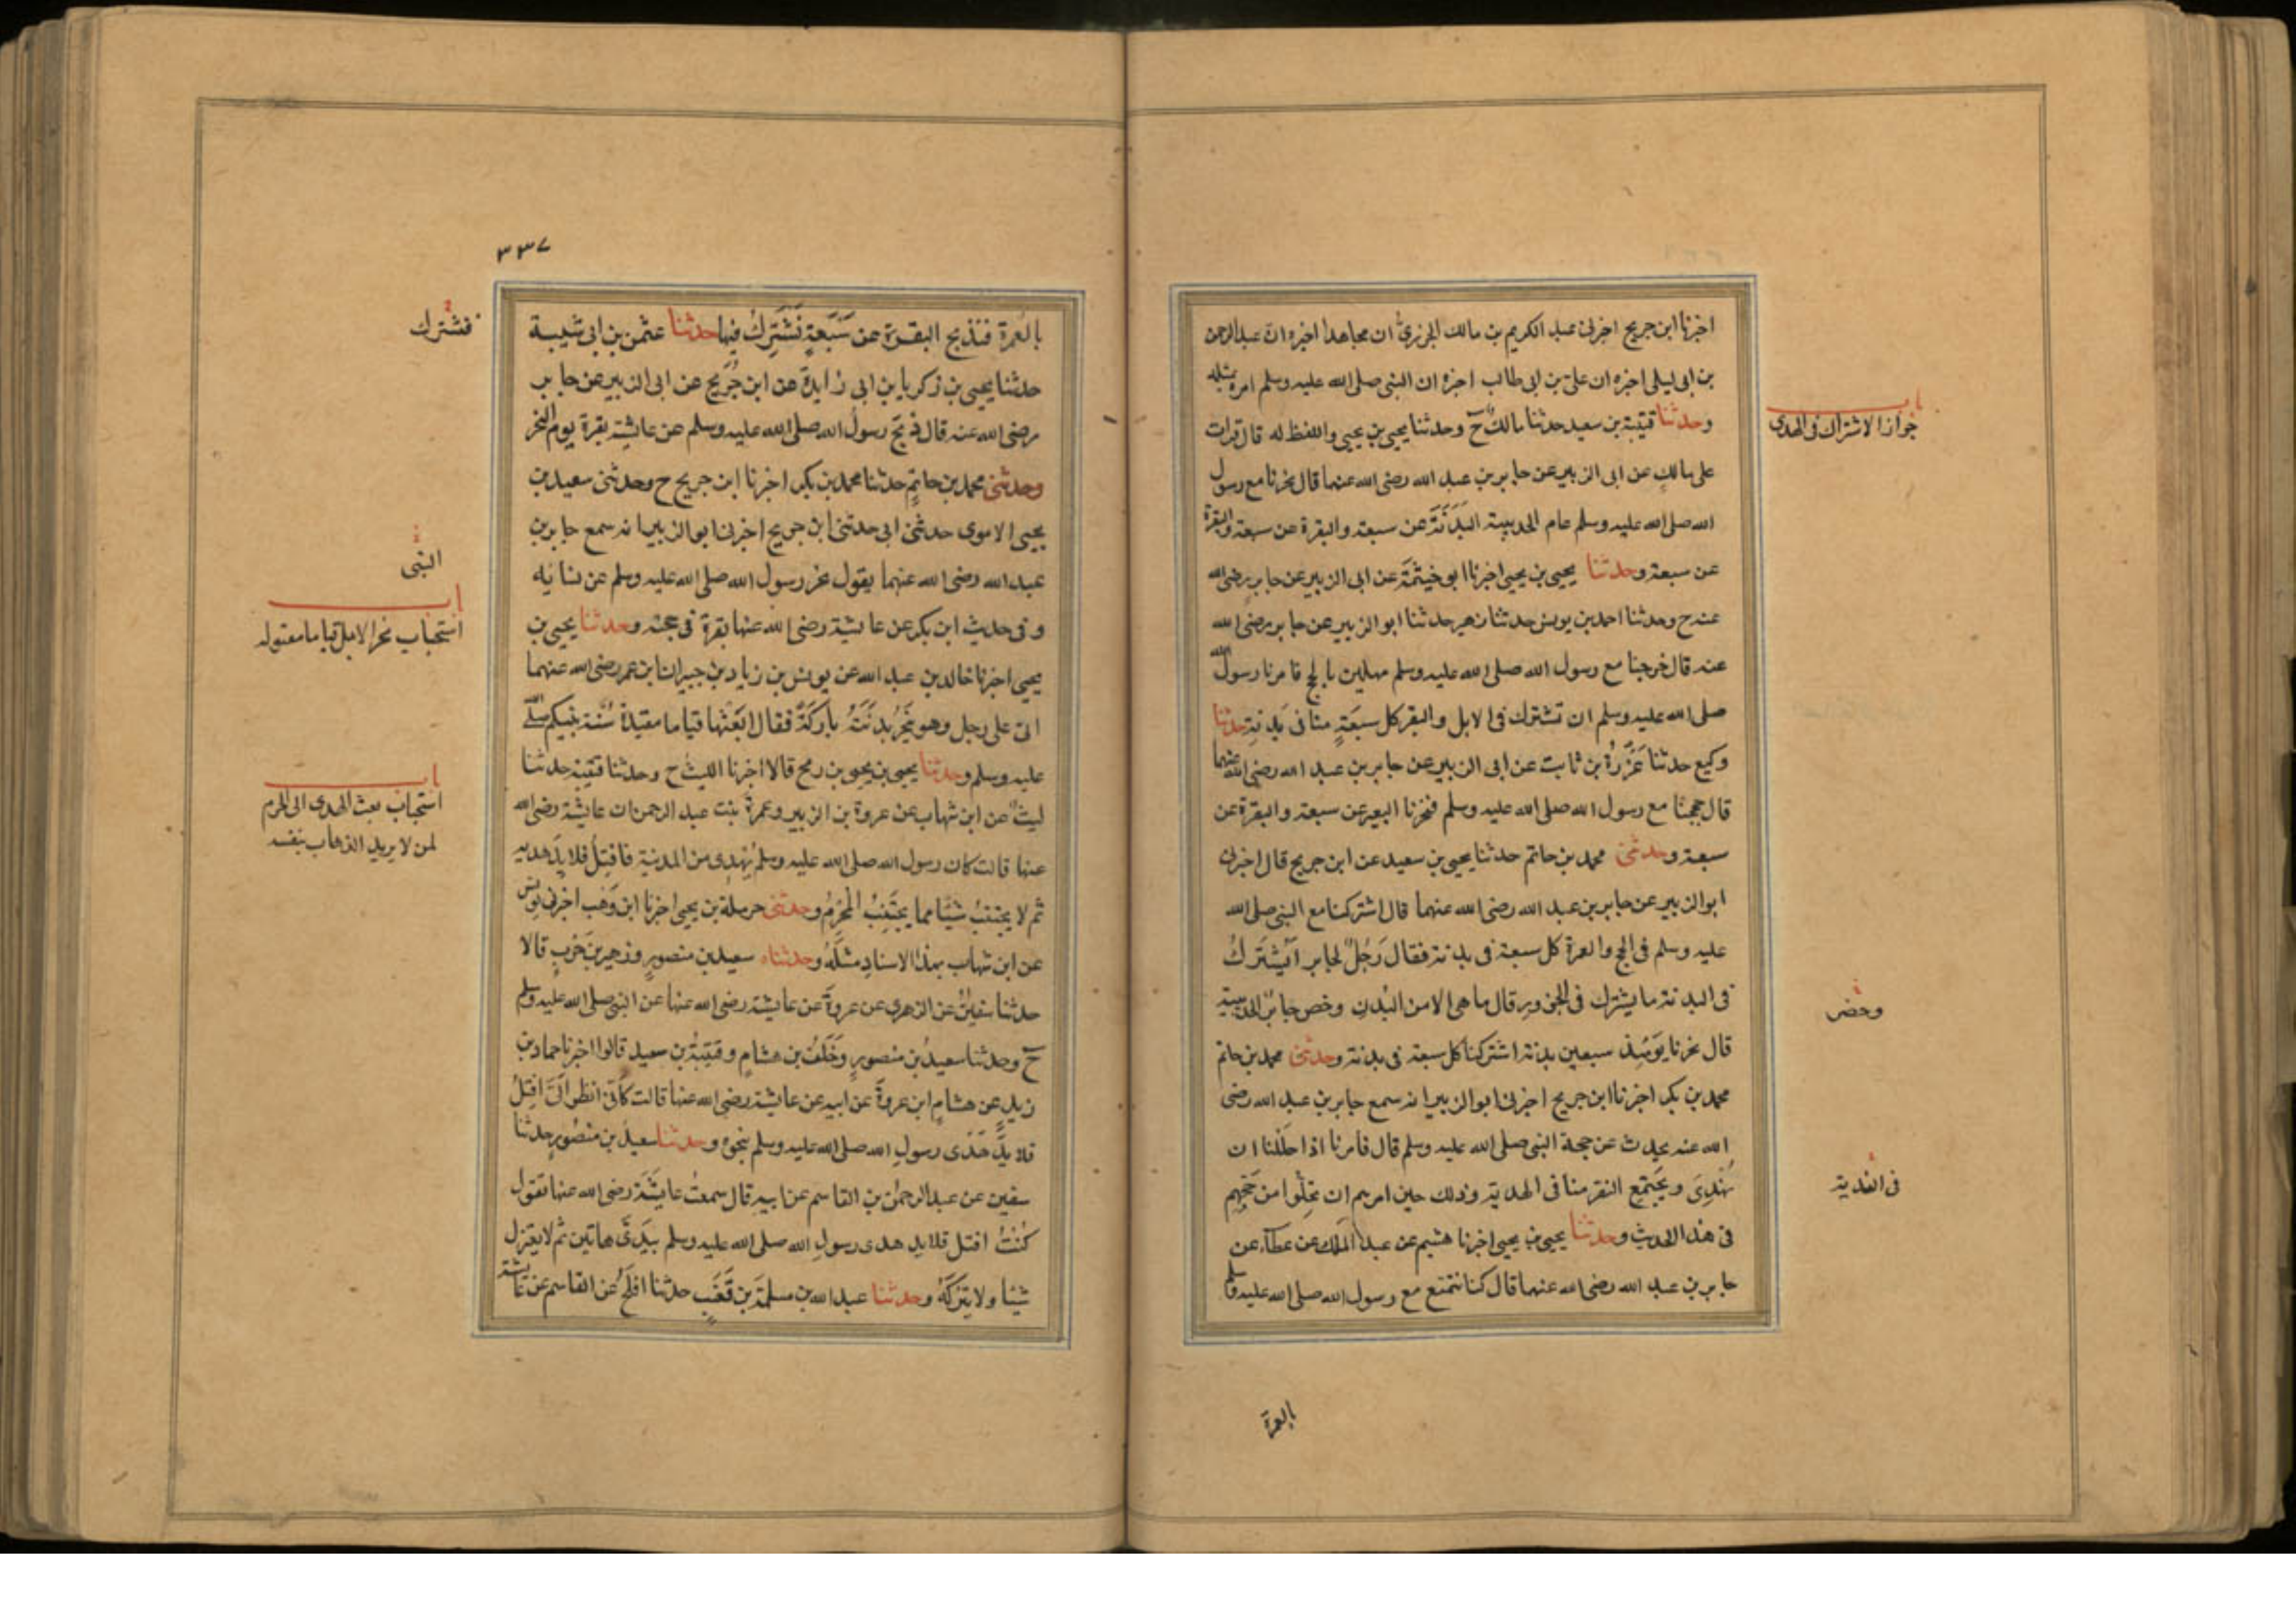 اخبرنا ابن جريج اخبرنى عبد الكريم بن مالك الجزرىّ ان مجاهدا اخبره ان عبد الرحمن
بن ابى ليلى اخبره ان علىّ بن ابى طالب اخبره ان النبى صلى الله عليه وسلم امره بمثله
وحدثنا قتيبة بن سعيد حدثنا مالك ح وحدثنا يحيى بن يحيى واللفظ له قال قرات
على مالك عن ابى الزبير عن جابر بن عبد الله رضى الله عنهما قال نحرنا مع رسول
الله صلى الله عليه وسلم عام الحديبية البدنة عن سبعة والبقرة عن سبعة والبقرة
عن سبعة وحدثنا يحيى بن يحيى اخبرنا ابو خيثمة عن ابى الزبير عن جابر رضى الله
عنه ح وحدثنا احمد بن يونس حدثنا زهير حدثنا ابو الزبير عن جابر رضى الله
عنه قال خرجنا مع رسول الله صلى الله عليه وسلم مهلين بالحج فامرنا رسول الله
صلى الله عليه وسلم ان نشترك فى الابل والبقر كل سبعة منا فى بدنة حدثنا
وكيع حدثنا عزرة بن ثابت عن ابى الزبير عن جابر بن عبد الله رضى الله عنهما
قال حججنا مع رسول الله صلى الله عليه وسلم فنحرنا البعير عن سبعة والبقرة عن
سبعة وحدثنى محمد بن حاتم حدثنا يحيى بن سعيد عن ابن جريج قال اخبرنى
ابو الزبير عن جابر بن عبد الله رضى الله عنهما قال اشتركنا مع النبى صلى الله
عليه وسلم فى الحج والعمرة كل سبعة فى بدنة فقال رَجُلٌ لجابر اَيُشْتَرَكُ
فى البدنة ما يشترك فى الجزور قال ما هى الا من البُدنِ وخص جابر الحديبية
قال نحرنا يومئذ سبعين بدنة اشتركنا كل سبعة فى بدنة وحدثنى محمد بن حاتم
محمد بن بكر اخبرنا ابن جريج اخبرنى ابو الزبير انه سمع جابر بن عبد الله رضى
الله عنه يحدث عن حجة النبى صلى الله عليه وسلم قال فامرنا اذا حللنا ان
نُهْدِىَ ويجتمع النفر منا فى الهدية وذلك حين امرهم ان يحلّوا من حجّهم
فى هذا الحديث وحدثنا يحيى بن يحيى اخبرنا هشيم عن عبد الملك عن عطآء عن
جابر بن عبد الله رضى الله عنهما قال كنا نتمتع مع رسول الله صلى الله عليه وسلم
باب
جواز الاشتراك فى الهدى
وحضر
فى الفدية
بالعمرة
٣٣٧
بالعمرة فنذبح البقرة عن سَبْعَةٍ نَشْتَرِكُ فيها حدثنا عثمن بن ابى شيبة
حدثنا يحيى بن زكريا بن ابى زايدة عن ابن جُرَيج عن ابى الزبير عن جابر
رضى الله عنه قال ذبح رسول الله صلى الله عليه وسلم عن عايشة بقرة يوم النحر
وحدثنى محمد بن حاتم حدثنا محمد بن بكر اخبرنا ابن جريج ح وحدثنى سعيد بن
يحيى الاموى حدثنى ابى حدثنى ابن جريج اخبرنى ابو الزبير انه سمع جابر بن
عبد الله رضى الله عنهما يقول نحر رسول الله صلى الله عليه وسلم عن نسايه
وفى حديث ابن بكر عن عايشة رضى الله عنها بقرة فى حجته وحدثنا يحيى بن
يحيى اخبرنا خالد بن عبد الله عن يونس بن زياد بن جبير ان ابن عمر رضى الله عنهما
اتى على رجل وهو ينحر بدنته باركة فقال ابعثها قياما مقيدة سنة نبيكم صلى الله
عليه وسلم وحدثنا يحيى بن يحيى بن رمح قالا اخبرنا الليث ح وحدثنا قتيبة حدثنا
ليث عن ابن شهاب عن عروة بن الزبير وعمرة بنت عبد الرحمن ان عايشة رضى الله
عنها قالت كان رسول الله صلى الله عليه وسلم يُهدِى من المدينة فافتِلُ قلايد هديه
ثم لا يجتنب شيئا مما يجتنبُ المحرمُ وحدثنى حرملة بن يحيى اخبرنا ابن وهب اخبرنى يونس
عن ابن شهاب بهذا الاسناد مثله وحدثناه سعيد بن منصور وزهير بن حرب قالا
حدثنا سفين عن الزهرى عن عروة عن عايشة رضى الله عنها عن النبى صلى الله عليه وسلم
ح وحدثنا سعيد بن منصور وخلف بن هشام وقتيبة بن سعيد قالوا اخبرنا حماد بن
زيد عن هشام ابن عروة عن ابيه عن عايشة رضى الله عنها قالت كانى انظر الىّ افتل
قلايد هدى رسول الله صلى الله عليه وسلم بنحوه وحدثنا سعيد بن منصور حدثنا
سفين عن عبد الرحمن بن القاسم عن ابيه قال سمعت عايشة رضى الله عنها تقول
كُنْتُ افتل قلايد هدى رسول الله صلى الله عليه وسلم بيدىّ هاتين ثم لا يعتزل
شيئا ولا يتركه وحدثنا عبد الله بن مسلمة بن قعنب حدثنا افلح عن القاسم عن عايشة
فنشترك
النبى
باب
استحباب نحر الابل قياما معقوله
باب
استحباب بعث الهدى الى الحرم
لمن لا يريد الذهاب بنفسه